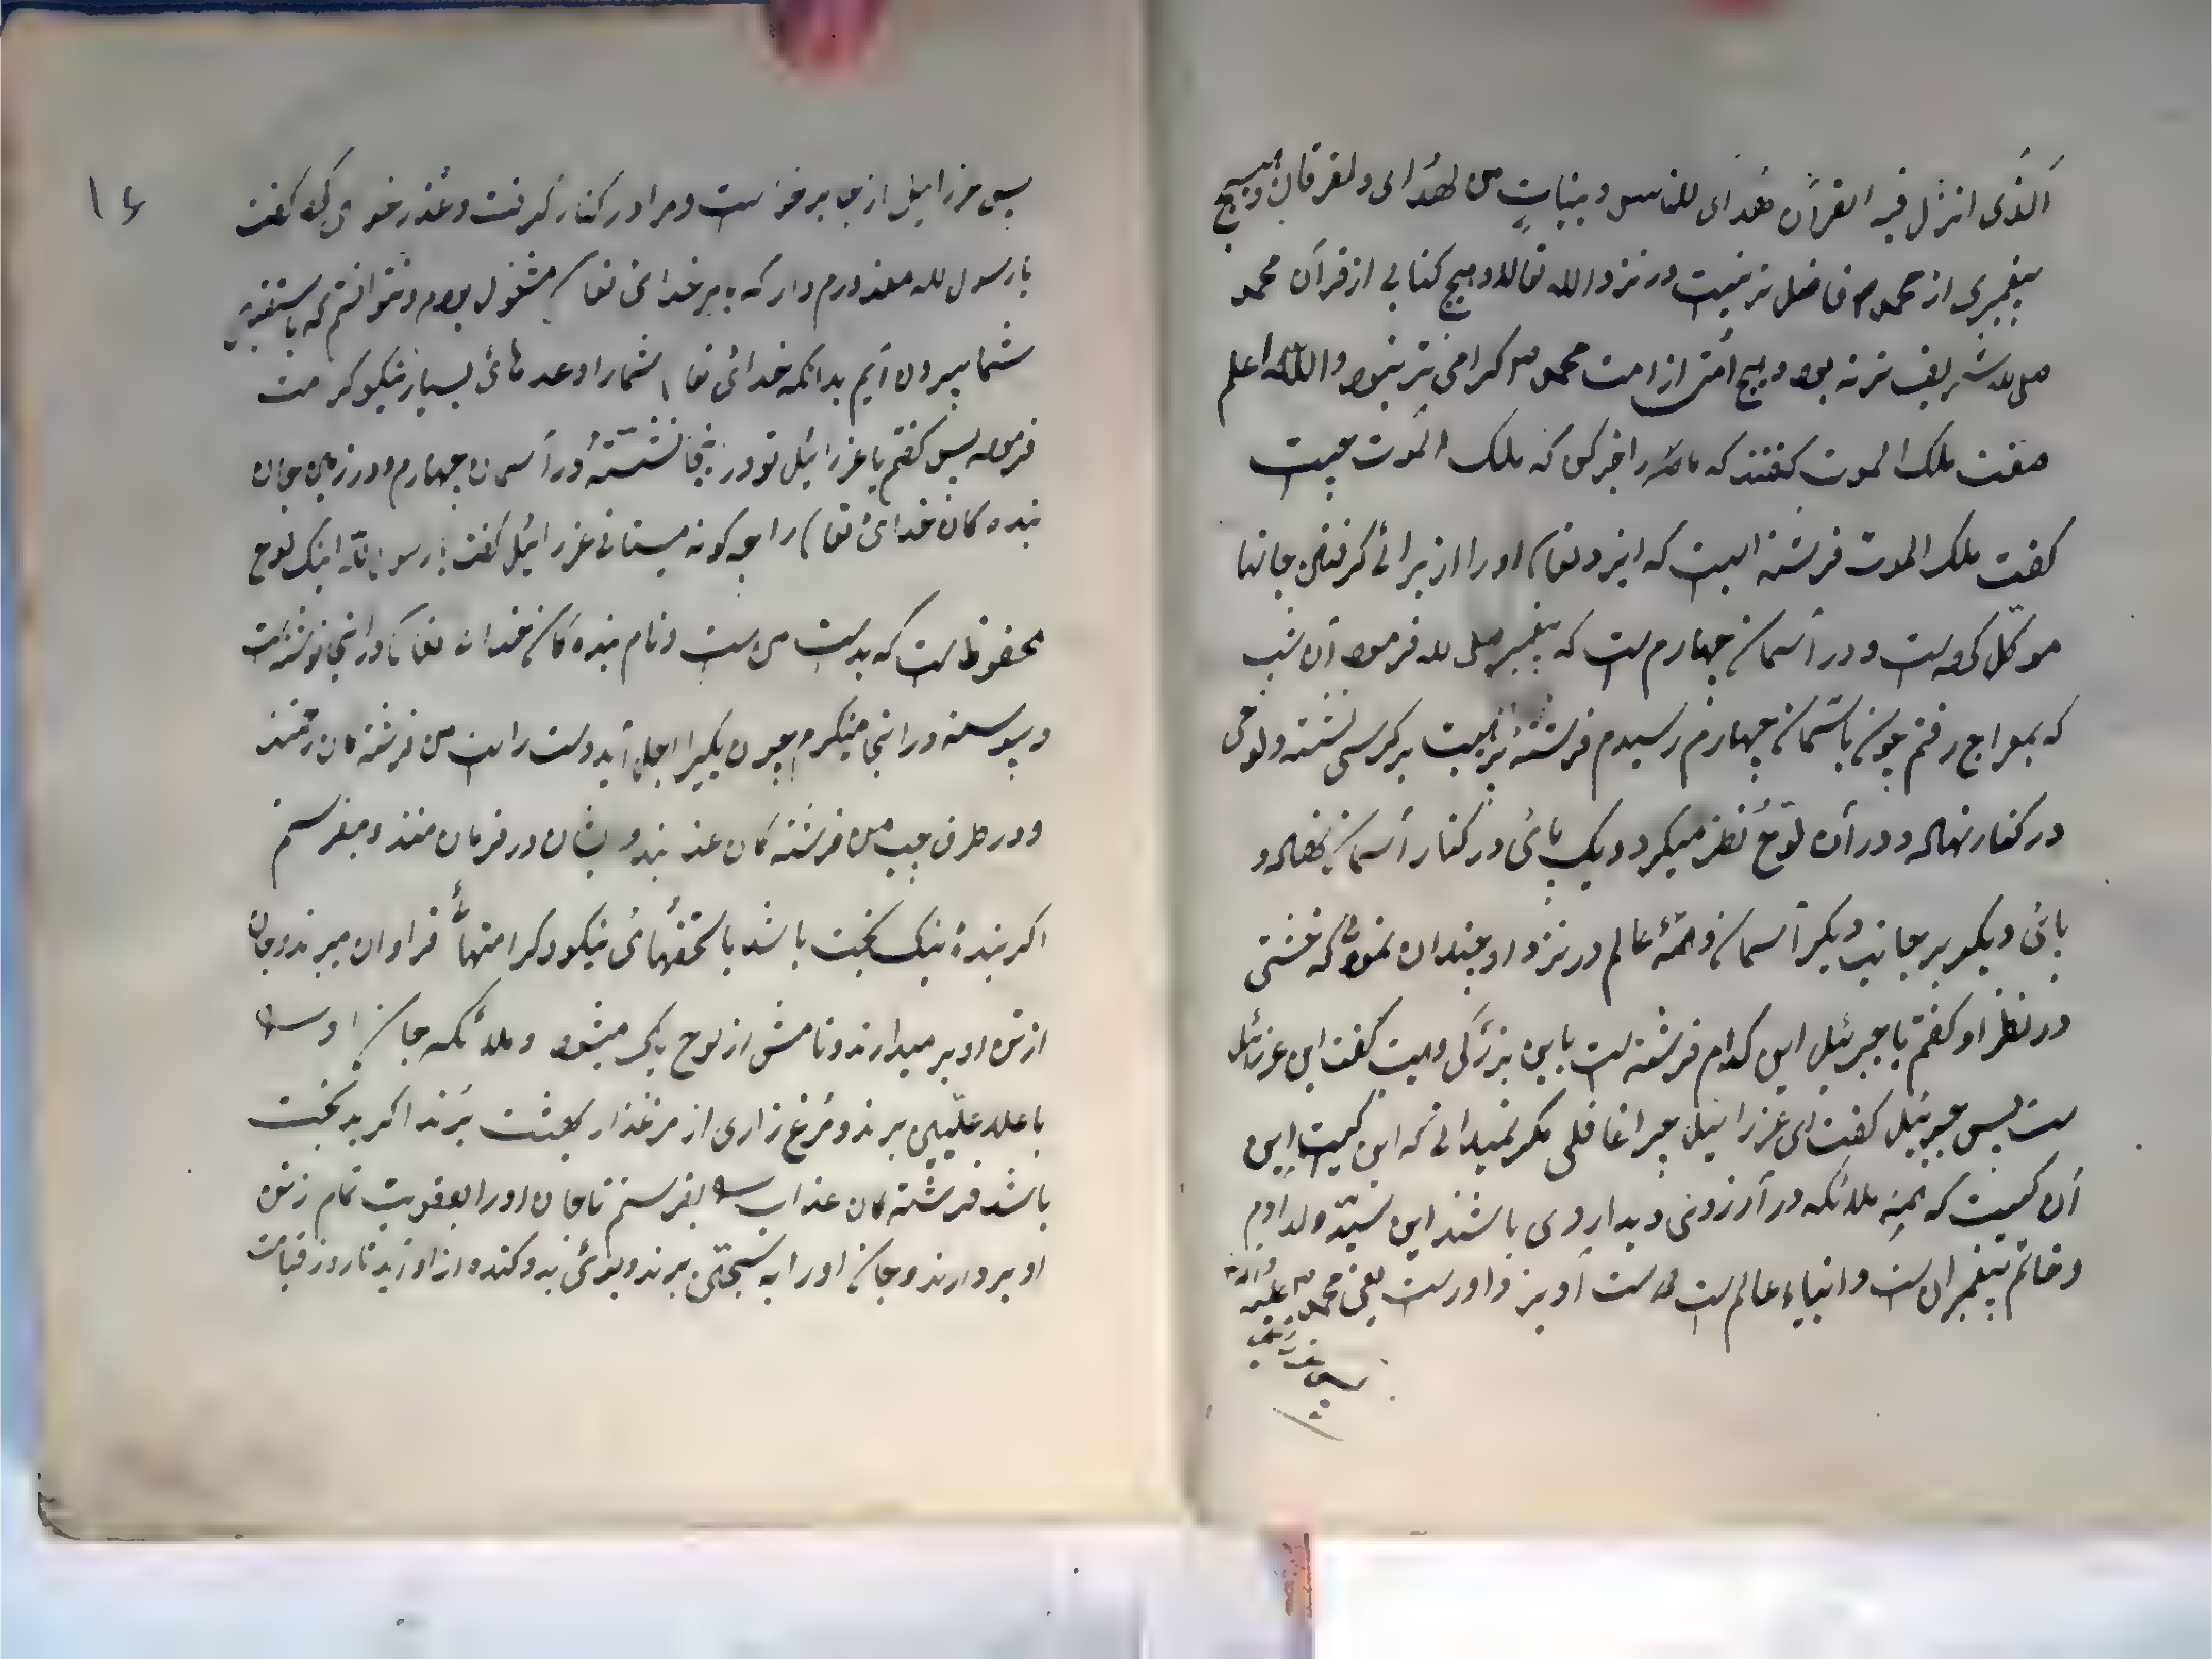 الذی انزل فیه القرآن هدای للناس و بینات من لهدای و لفرقان و هیچ
پیغمبری از محمد ص فاضل تر نیست در نزد الله تعالی و هیچ کتابی از قرآن محمد
صلی الله شریف تر نه بود و هیچ امتی از امت محمد ص کرامی تر نبود والله اعلم
صفت ملک الموت گفتند که ما را خبر کن که ملک الموت چیست
گفت ملک الموت فرشته ایست که ایزد تعالی او را از برائ گرفتن جانها
موکّل کرده است و در آسمان چهارم است که پیغمبر صلی لله فرموده آن شب
که بمعراج رفتم چون باسمان چهارم رسیدم فرشتهٔ بر هیبت بر کرسی نشسته و لوحی
در کنار نهاده و در آن لوح نظر میکرد و یک پائ در کنار آسمان نهاده و
پائ دیکر بر جانب دیکر آسمان و همهٔ عالم در نزد او چندان نمود که خشتی
در نظر او گفتم یا جبرئیل این کدام فرشته است باین بزرگی و هیبت گفت این عزرائیل
است پس جبرئیل گفت ای عزرائیل چرا غافلی مکر نمیدانی که این کیست این
آن کیست که همه ملائکه در آرزوی دیدار وی باشند این سیّد ولد آدم
و خاتم پیغمبران است و انبیاء عالم است
پس عزرائیل
۱۶
پس عزرائیل از جا برخواست و مرا در کنار گرفت و عذر خواهی کرد گفت
یا رسول لله معذورم دار که بامر خدائ تعالی مشغول بودم و نتوانستم که باستقبال
شما بیرون آیم بدانکه خدائ تعالی شما را وعدهائ بسیار نیکو کرامت
فرموده پس گفتم یا عزرائیل تو در اینجا نشستهٔ در آسمان چهارم و در زمین جان
بنده کان خدائ تعالی را چه کونه میستانی عزرائیل گفت یا رسول الله اینک لوح
محفوظ است که بدست من است و نام بنده کان خدای تعالی در اینجا نوشته است
و پیوسته در اینجا مینکرم چون یکیرا اجل آید دست راست من فرشته کان رحمتند
و در طرف چپ من فرشته کان عذابند و ایشان در فرمان منند و میفرستم
اکر بندهٔ نیک بخت باشد با تحفهائ نیکو و کرامتهائ فراوان میبرند و جان
از تن او بر میدارند و نامش از لوح پاک میشود و ملائکه جان او را
باعلاء علّیین برند و مرغ زاری از مرغذار بهشت برند اکر بدبخت
باشد فرشته کان عذاب را بفرستم تا جان او را بعقوبت تمام از تن
او بردارند و جان او را به سجّین برند و بوئ بد و کنده از او آید تا روز قیامت